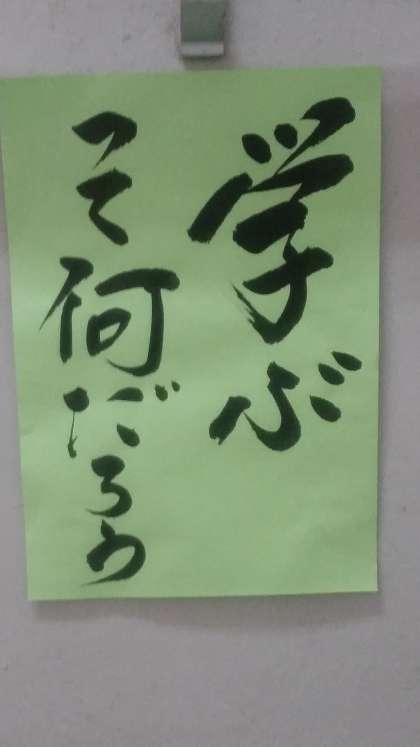 学ぶ
って何だろう